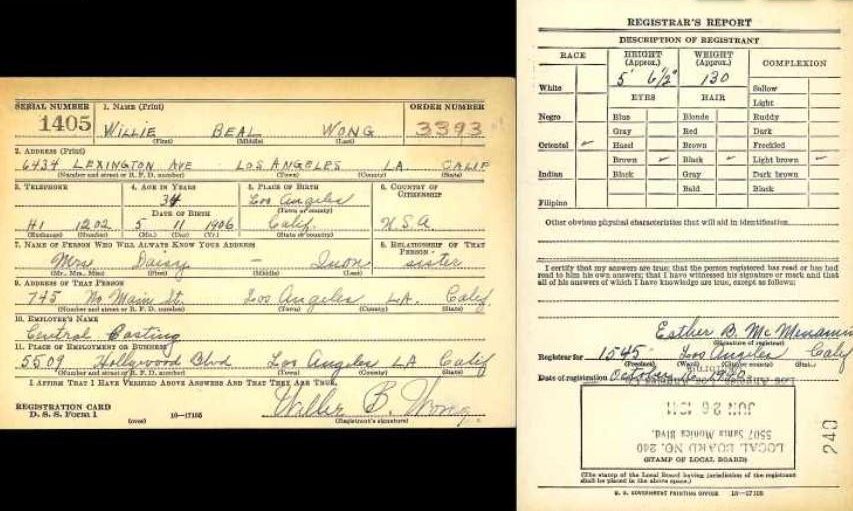 SERIAL NUMBER 1. NAME (Print) ORDER NUMBER
1405 WILLIE BEAL WONG 3393
(First) (Middle) (Last)
2. ADDRESS (Print)
6434 LEXINGTON AVE LOS ANGELES L.A. CALIF
(Number and street or R. F. D. number) (Town) (County) (State)
3. TELEPHONE 4. AGE IN YEARS 5. PLACE OF BIRTH 6. COUNTRY OF CITIZENSHIP
34 Los Angeles
DATE OF BIRTH (Town or county)
HI 1202 5 11 1906 Calif. U.S.A.
(Exchange) (Number) (Mo.) (Day) (Yr.) (State or country)
7. NAME OF PERSON WHO WILL ALWAYS KNOW YOUR ADDRESS 8. RELATIONSHIP OF THAT PERSON
Mrs. Daisy — Quon sister
(Mr., Mrs., Miss) (First) (Middle) (Last)
9. ADDRESS OF THAT PERSON
745 No Main St. Los Angeles L.A. Calif
(Number and street or R. F. D. number) (Town) (County) (State)
10. EMPLOYER'S NAME
Central Casting
11. PLACE OF EMPLOYMENT OR BUSINESS
5509 Hollywood Blvd Los Angeles LA Calif
(Number and street or R. F. D. number) (Town) (County) (State)
I AFFIRM THAT I HAVE VERIFIED ABOVE ANSWERS AND THAT THEY ARE TRUE.
REGISTRATION CARD
D. S. S. Form 1 (over) 16—17105 B. Wong
(Registrant's signature)
REGISTRAR'S REPORT
DESCRIPTION OF REGISTRANT
RACE HEIGHT (Approx.) WEIGHT (Approx.) COMPLEXION
5' 6½" 130
White EYES HAIR Sallow
Light
Negro Blue Blonde Ruddy
Gray Red Dark
Oriental Hazel Brown Freckled
Brown Black Light brown
Indian Black Gray Dark brown
Bald Black
Filipino
Other obvious physical characteristics that will aid in identification
I certify that my answers are true; that the person registered has read or has had
read to him his own answers; that I have witnessed his signature or mark and that
all of his answers of which I have knowledge are true, except as follows:
Esther B. McMenamin
(Signature of registrar)
Registrar for 1545 Los Angeles Calif
(Precinct) (Ward) (City or county) (State)
Date of registration October 16, 1940
JUN 26 1941
5507 Santa Monica Blvd.
LOCAL BOARD NO. 240
(STAMP OF LOCAL BOARD)
240
(The stamp of the Local Board having jurisdiction of the registrant
shall be placed in the above space.)
U. S. GOVERNMENT PRINTING OFFICE 16—17105